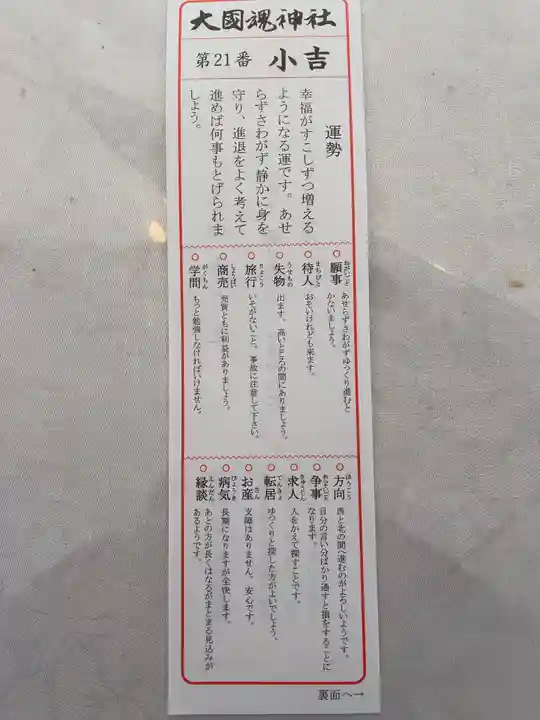 大國魂神社
第21番 小吉
運勢
幸福がすこしずつ増える
ようになる運です。あせ
らずさわがず、静かに身を
守り、進退をよく考えて
進めば何事もとげられま
しょう。
願事 ねがいごと
あせらずさわがずゆっくり進むと
かないましょう。
待人 まちびと
おそいけれども来ます。
失物 うせもの
出ます。高いところの間にありましょう。
旅行 りょこう
いそがないこと。事故に注意して下さい。
商売 しょうばい
売買ともに利益がありましょう。
学問 がくもん
もっと勉強しなければいけません。
方向 ほうこう
西と北の間へ進むのがよろしいようです。
争事 あらそいごと
自分の言い分ばかり通すと損をすることに
なります。
求人 きゅうじん
人をかえて探すことです。
転居 てんきょ
ゆっくりと探した方がよいでしょう。
お産 さん
支障はありません。安心です。
病気 びょうき
長期になりますが全快します。
縁談 えんだん
あとの方が長くはなるがまとまる見込みが
あるようです。
裏面へ→